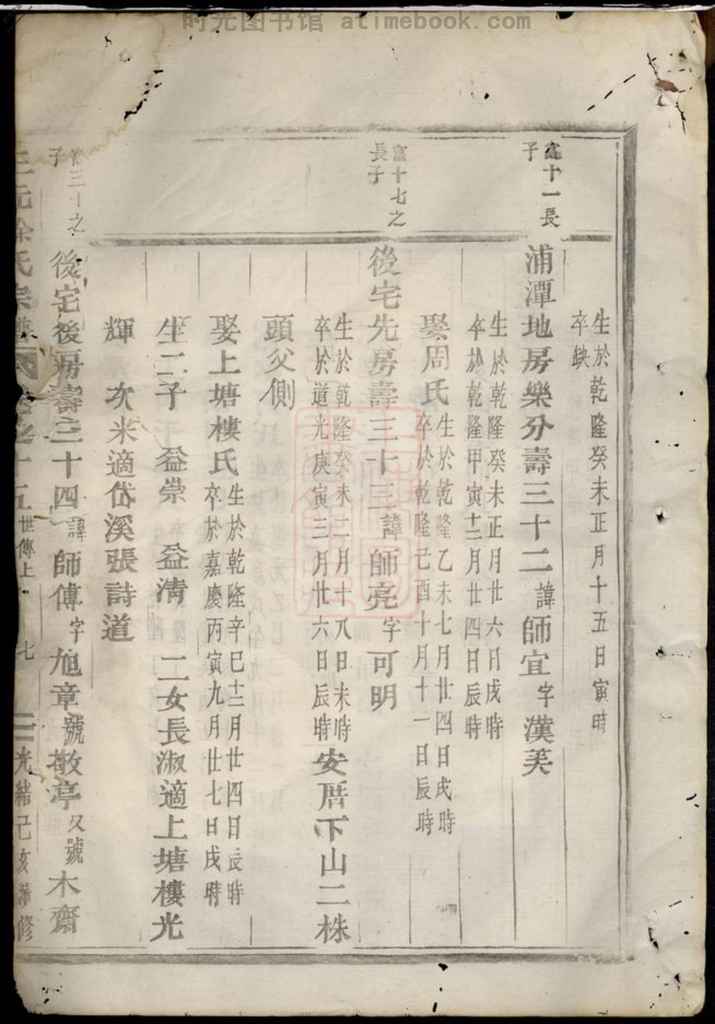 时光图书馆 atimebook.com
生於乾隆癸未正月十五日寅時
卒缺
富十一長
子
浦潭地房樂分壽三十二諱師宜字漢美
生於乾隆癸未正月廿六日戌時
卒於乾隆甲寅十二月廿四日辰時
娶周氏生於乾隆乙未七月廿四日戌時
卒於乾隆己酉十月十一日辰時
富十七之
長子
後宅先房壽三十三諱師亮字可明
生於乾隆癸未二月十八日未時
卒於道光庚寅三月廿六日辰時
安厝下山二株
頭父側
娶上塘樓氏生於乾隆辛巳十二月廿四日辰時
卒於嘉慶丙寅九月廿七日戌時
生二子 益崇 益清 二女長淑適上塘樓光
輝 次米適岱溪張詩道
三十之
子
後宅後房壽三十四諱師傅字旭章號敬亭又號木齋
徐氏宗譜 卷之十五 世傳上 七 光緒己亥華修